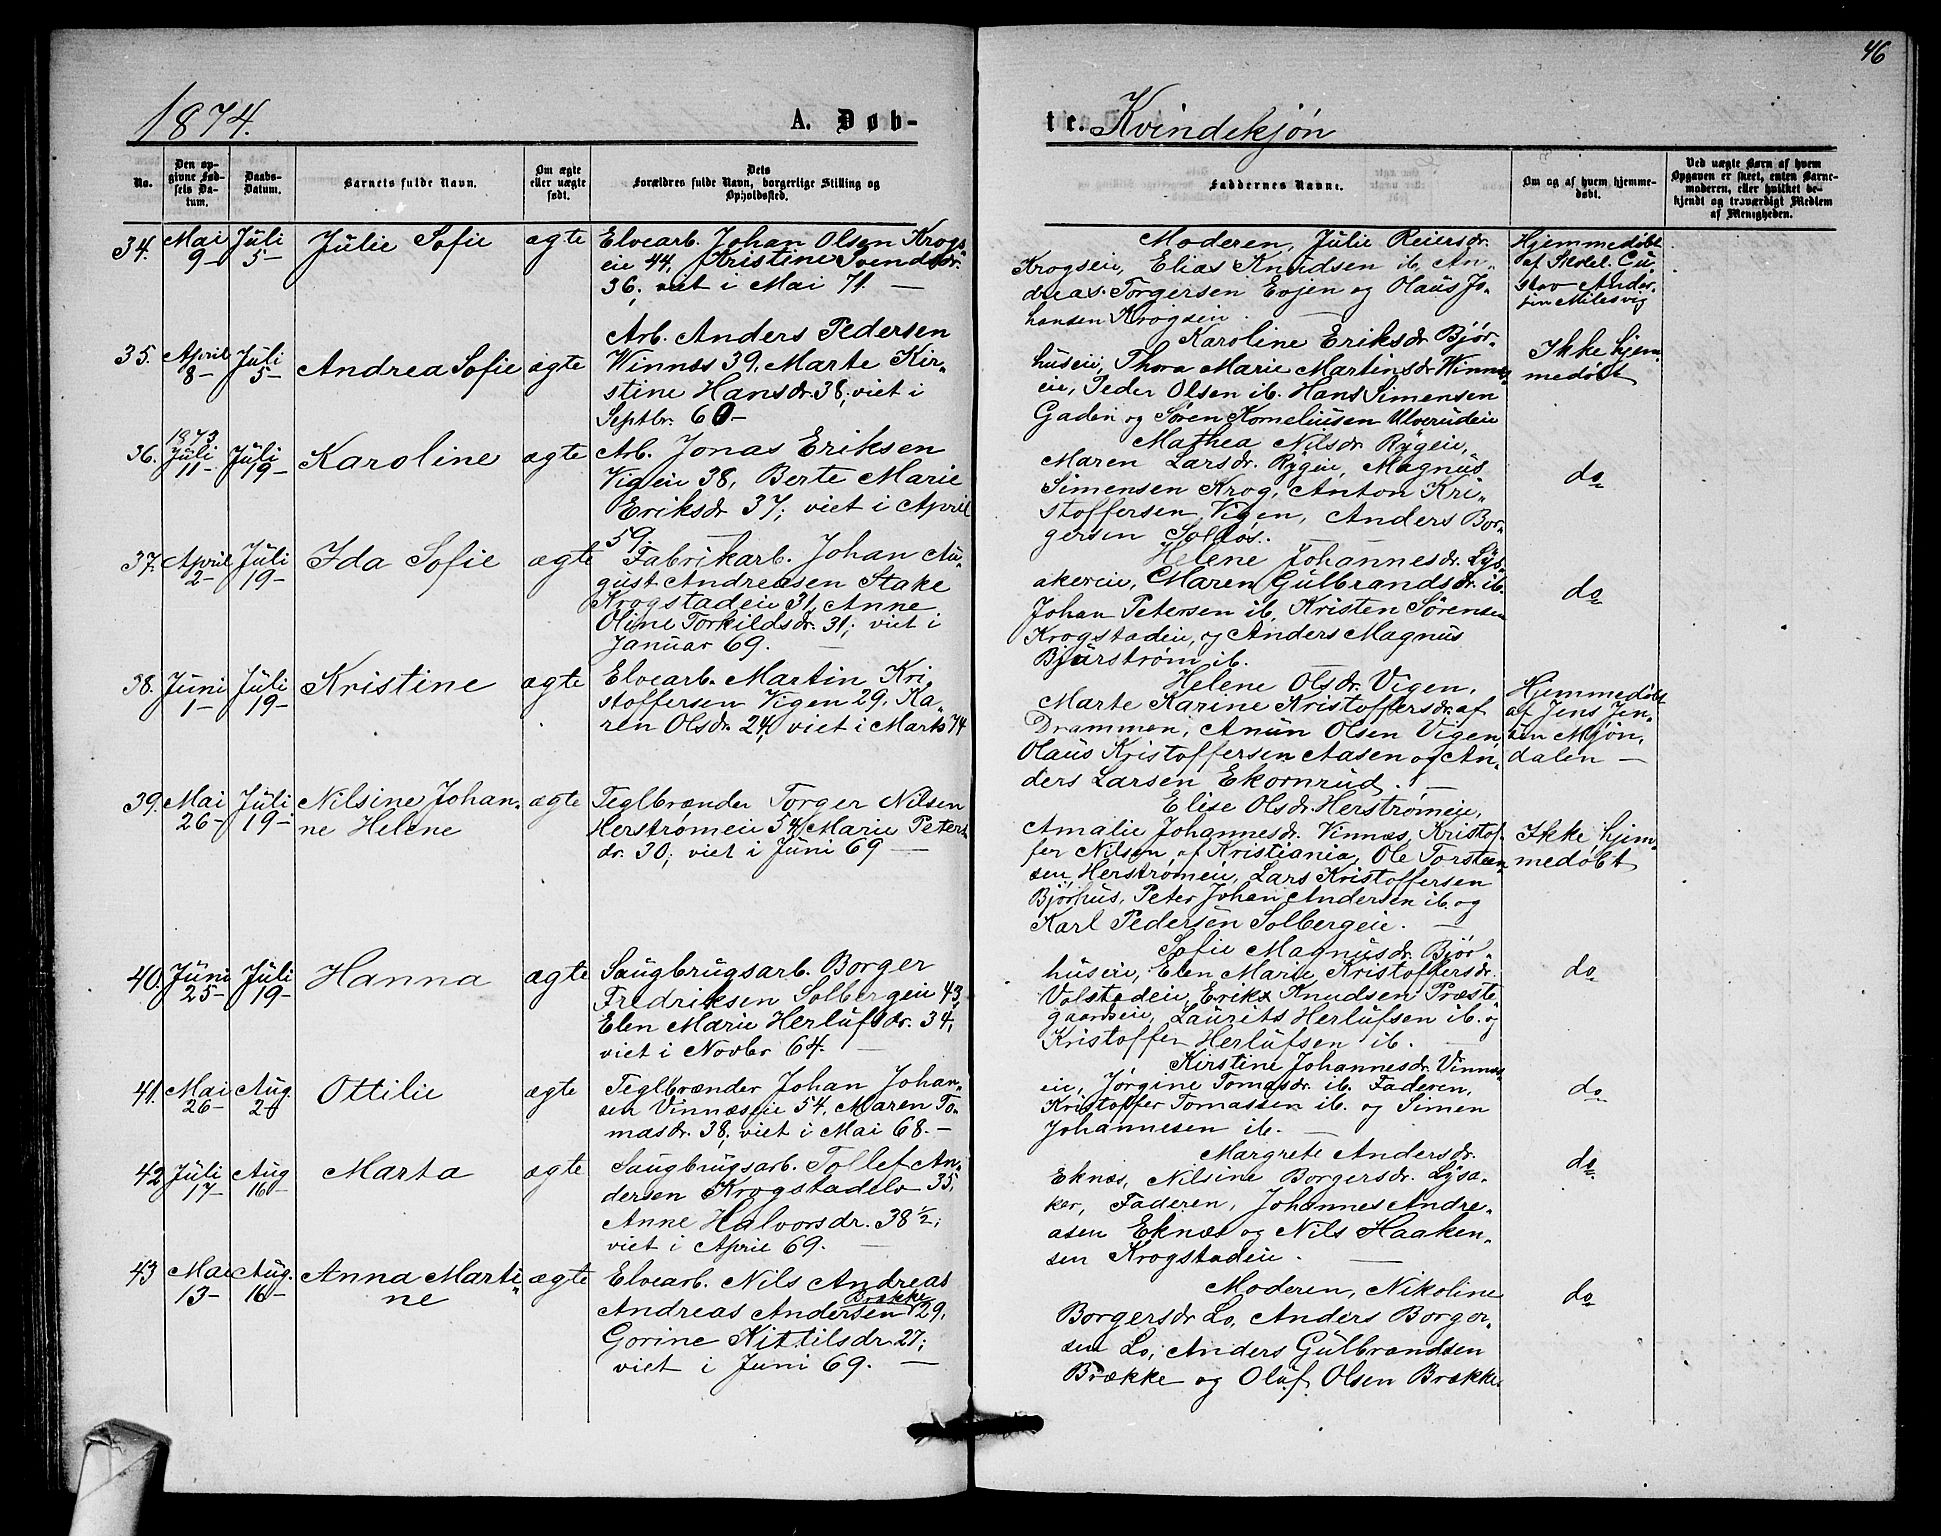 46
1874.
A. Døb-
te. Kvindekjøn
No.
Den op-
givne Fød-
sels Da-
tum.
Daabs-
Datum.
Barnets fulde Navn.
Om ægte
eller uægte
født.
Dets
Forældres fulde Navn, borgerlige Stilling og
Opholdssted.
Faddernes Navne.
Om og af hvem hjemme-
døbt.
Ved uægte Børn af hvem
Opgaven er skeet, enten Barne-
moderen, eller hvilket be-
kjendt og troværdigt Medlem
af Menigheden.
34. Mai 9- Juli 5- Julie Sofie ægte
Elvearb. Johan Olsen Krogs-
eie 44, Kristine Svendsdr.
36; viet i Mai 71. -
Moderen, Julie Reiersdr.
Krogseie, Elias Knudsen ib, An-
dreas Torgersen Evjen og Olaus Jo-
hansen Krogseie.
Hjemmedøbt
af Skolel. Gu-
stav Ander-
sen Milesvig
35. April 8- Juli 5- Andrea Sofie ægte
Arb. Anders Pedersen
Winnæs 39, Marte Kir-
stine Hansdr. 38; viet i
Septbr. 60-
Karoline Eriksdr Bjør-
huseie, Thora Marie Martinsdr Winnæs-
eie, Peder Olsen ib. Hans Simensen
Gaden og Søren Korneliusen Ulverudeie
Ikke hjem-
medøbt
36. 1873 Juli 11- Juli 19- Karoline ægte
Arb. Jonas Eriksen
Vigeie 38, Berte Marie
Eriksdr 37; viet i April
59.
Mathea Nilsdr. Rygeie,
Maren Larsdr. Rygeie, Magnus
Simensen Krog, Anton Kri-
stoffersen Vigen, Anders Bor-
gersen Solløs.
do
37. April 2- Juli 19- Ida Sofie ægte
Fabrikarb. Johan Au-
gust Andreasen Stake
Krogstadeie 31, Anne
Oline Torkildsdr. 31; viet i
Januar 69. -
Helene Johannesdr. Lys-
akereie, Maren Gulbrandsdr. ib.
Johan Petersen ib, Kristen Sørensen
Krogstadeie, og Anders Magnus
Bjurstrøm ib.
do
38. Juni 1- Juli 19- Kristine ægte
Elvearb. Martin Kri-
stoffersen Vigen 29, Ka-
ren Olsdr. 24, viet i Marts 74
Helene Olsdr. Vigen,
Marte Karine Kristoffersdr. af
Drammen, Anun Olsen Vigen,
Olaus Kristoffersen Aasen og An-
ders Larsen Ekornrud. -
Hjemmedøbt
af Jens Jen-
sen Mjøn-
dalen -
39. Mai 26- Juli 19- Nilsine Johan- ægte
ne Helene
Teglbrænder Torger Nilsen
Herstrømeie 54, Marie Peters-
dr. 30; viet i Juni 69 -
Elise Olsdr. Herstrømeie,
Amalie Johannesdr. Vinnæs, Kristof-
fer Nilsen af Kristiania, Ole Torsten-
sen Herstrømeie, Lars Kristoffersen
Bjørhus, Peter Johan Andersen ib. og
Karl Pedersen Solbergeie. -
Ikke hjem-
medøbt
40. Juni 25- Juli 19- Hanna ægte
Saugbrugsarb. Borger
Fredriksen Solbergeie 43,
Elen Marie Herlufsdr. 34;
viet i Novbr 64. -
Sofie Magnusdr. Bjør-
huseie, Elen Marie Kristoffersdr.
Volstadeie, Erik Knudsen Præste-
gaardseie, Laurits Herlufsen ib. og
Kristoffer Herlufsen ib. -
do
41. Mai 26- Aug. 2- Ottilie ægte
Teglbrænder Johan Johan-
sen Vinnæseie 54, Maren To-
masdr. 38; viet i Mai 68. -
Kirstine Johannesdr. Vinnæs-
eie, Jørgine Tomasdr. ib. Faderen,
Kristoffer Tomassen ib. og Simen
Johannesen ib. -
do
42 Juli 17- Aug 16- Marta ægte
Saugbrugsarb. Tollef An-
dersen Krogstadelv 35,
Anne Halvorsdr. 38 1/2;
viet i April 69. -
Margrete Andersdr.
Eknæs, Nilsine Borgersdr. Lysa-
ker, Faderen, Johannes Andre-
asen Eknæs og Nils Haaken-
sen Krogstadeie -
do
43 Mai 13- Aug. 16- Anna Marti- ægte
ne
Elvearb. Nils Andreas
Brække
Andreas Andersen 29,
Gorine Kittilsdr. 27;
viet i Juni 69. -
Moderen, Nikoline
Borgersdr Lo, Anders Borger-
sen Lo, Anders Gulbrandsen
Brække og Oluf Olsen Brække
do